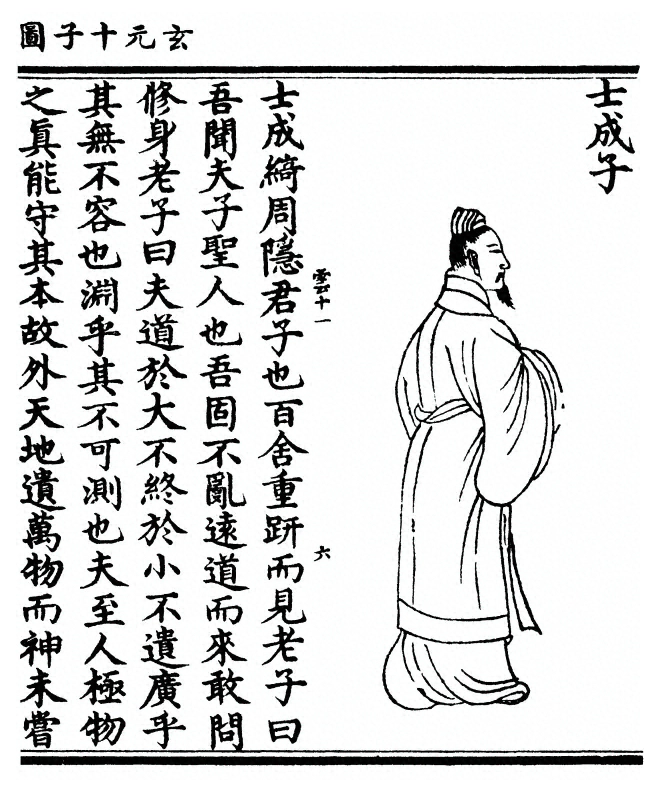 玄元十子圖
士成子
雲十一　六
士成綺周隱君子也百舍重趼而見老子曰
吾聞夫子聖人也吾固不亂遠道而來敢問
修身老子曰夫道於大不終於小不遺廣乎
其無不容也淵乎其不可測也夫至人極物
之眞能守其本故外天地遺萬物而神未嘗